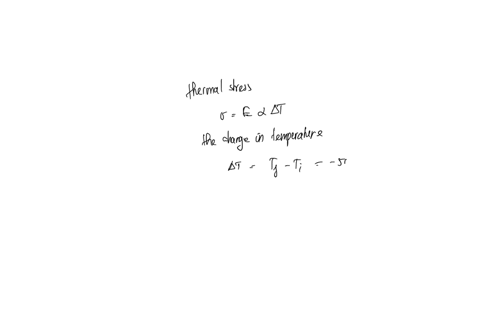 thermal stress
σ = E α ΔT
the change in temperature
ΔT = T_f - T_i = -51